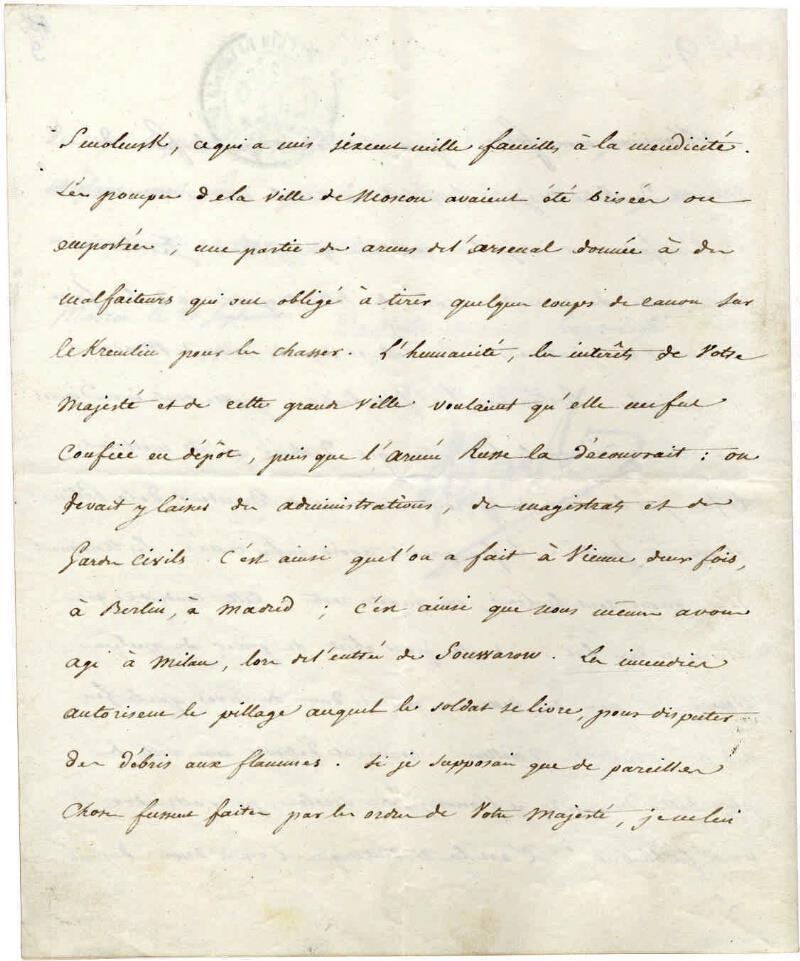 Smolensk, ce qui a mis six cent mille familles à la mendicité.
Les pompes de la ville de Moscou avaient été brisées ou
emportées, une partie des armes de l'arsenal donnée à des
malfaiteurs qui ont obligé à tirer quelques coups de canon sur
le Kremlin pour les chasser. L'humanité, les intérêts de Votre
Majesté et de cette grande Ville voulaient qu'elle me fut
confiée en dépôt, puisque l'armée Russe la découvrait: on
devait y laisser des administrations, des magistrats et des
Gardes Civils. C'est ainsi que l'on a fait à Vienne deux fois,
à Berlin, à Madrid; c'est ainsi que nous mêmes avons
agi à Milan, lors de l'entrée de Souwarow. Les incendies
autorisent le pillage auquel le soldat se livre, pour disputer
des débris aux flammes. Si je supposais que de pareilles
choses fussent faites par les ordres de Votre Majesté, je ne lui